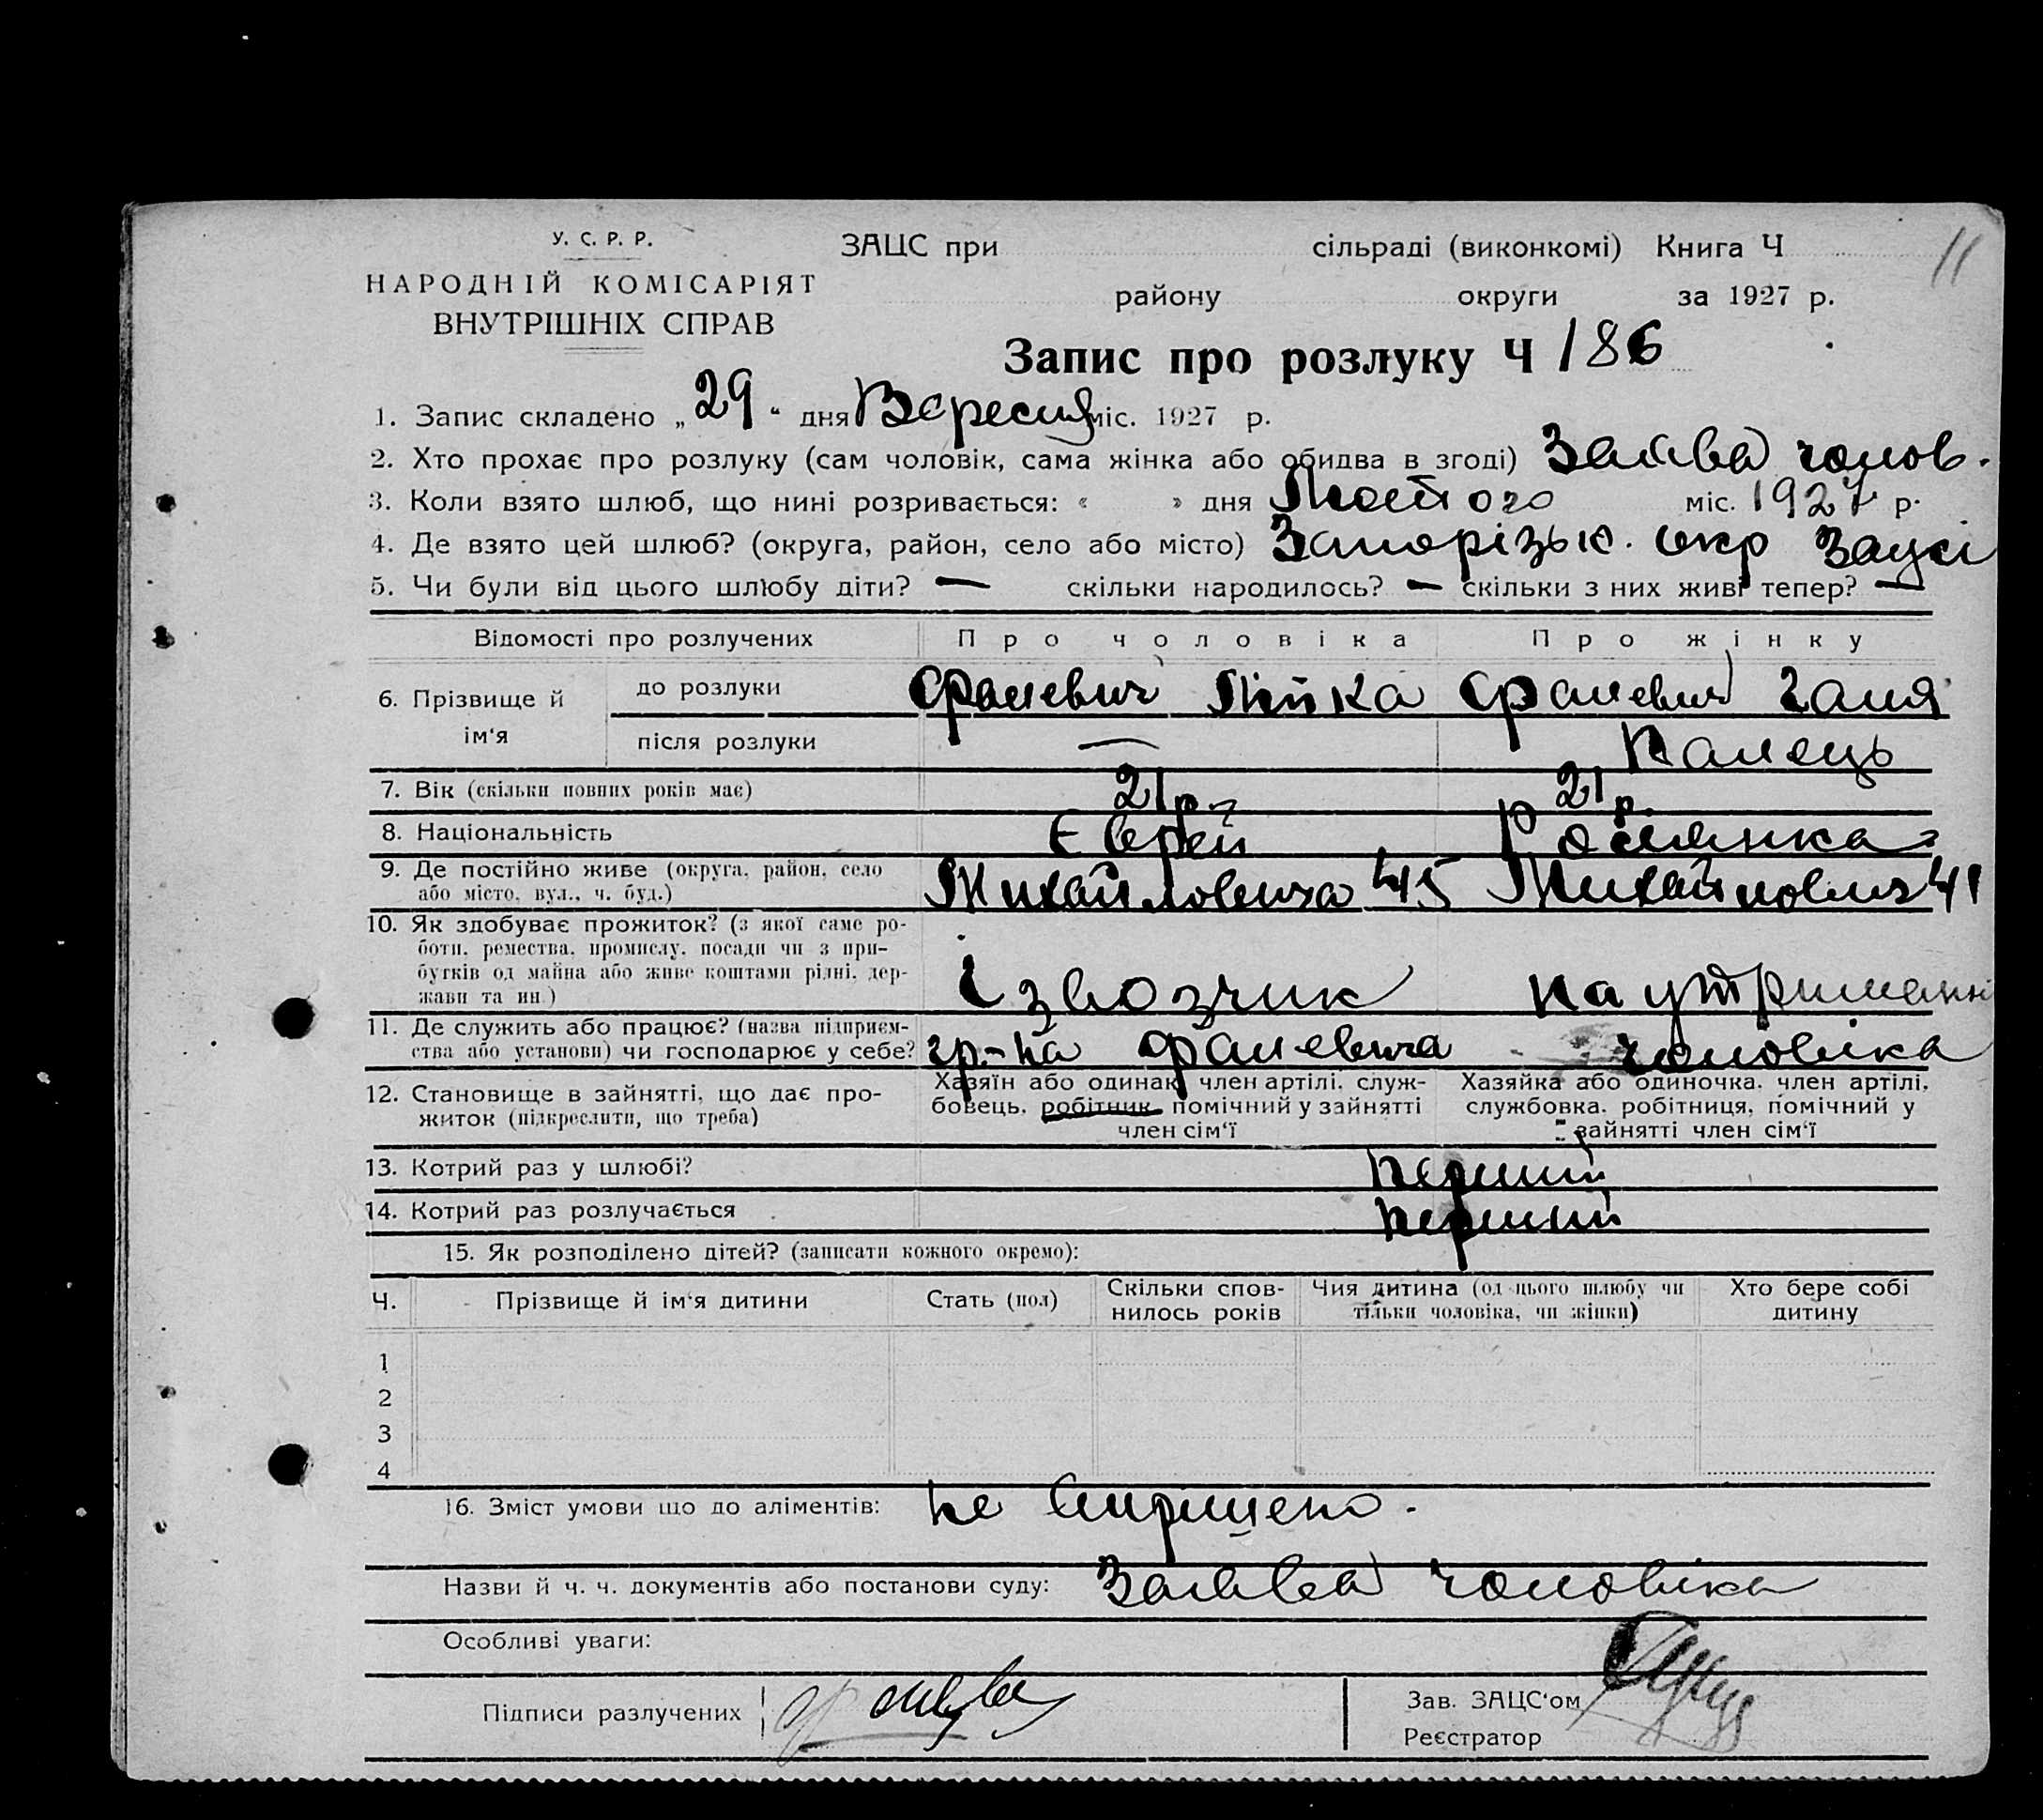 11
У. С. Р. Р.
НАРОДНІЙ КОМІСАРІЯТ
ВНУТРІШНІХ СПРАВ
ЗАЦС при сільраді (виконкомі) Книга Ч
району округи за 1927 р.
Запис про розлуку Ч 186
1. Запис складено „29“ дня Вересня міс. 1927 р.
2. Хто прохає про розлуку (сам чоловік, сама жінка або обидва в згоді) Заява чолов.
3. Коли взято шлюб, що нині розривається: « » дня Лютого міс. 1927 р.
4. Де взято цей шлюб? (округа, район, село або місто) Запорізьк. окр Зацсі
5. Чи були від цього шлюбу діти? — скільки народилось? — скільки з них живі тепер? —
Відомості про розлучених Про чоловіка Про жінку
6. Прізвище й ім‘я до розлуки Фалевич Лійка Фалевич Галя
після розлуки — Палець
7. Вік (скільки повних років має) 21 р. 21 р.
8. Національність Єврей Росіянка
9. Де постійно живе (округа, район, село або місто, вул., ч. буд.) Михайловича 45 Михайлович 41
10. Як здобуває прожиток? (з якої саме роботи, ремества, промислу, посади чи з прибутків од майна або живе коштами рідні, держави та ин.) Ізвозчик на утриманні
11. Де служить або працює? (назва підприємства або установи) чи господарює у себе? гр-на Фалевича чоловіка
12. Становище в зайнятті, що дає прожиток (підкреслити, що треба)
Хазяїн або одинак, член артілі, службовець, робітник, помічний у зайнятті член сім‘ї
Хазяйка або одиночка, член артілі, службовка, робітниця, помічний у зайнятті член сім‘ї
13. Котрий раз у шлюбі? перший
14. Котрий раз розлучається перший
15. Як розподілено дітей? (записати кожного окремо):
Ч. Прізвище й ім‘я дитини Стать (пол) Скільки сповнилось років Чия дитина (од цього шлюбу чи тільки чоловіка, чи жінки) Хто бере собі дитину
1
2
3
4
16. Зміст умови що до аліментів: не вирішено.
Назви й ч. ч. документів або постанови суду: Заява чоловіка
Особливі уваги:
Підписи разлучених
Зав. ЗАЦС‘ом
Реєстратор